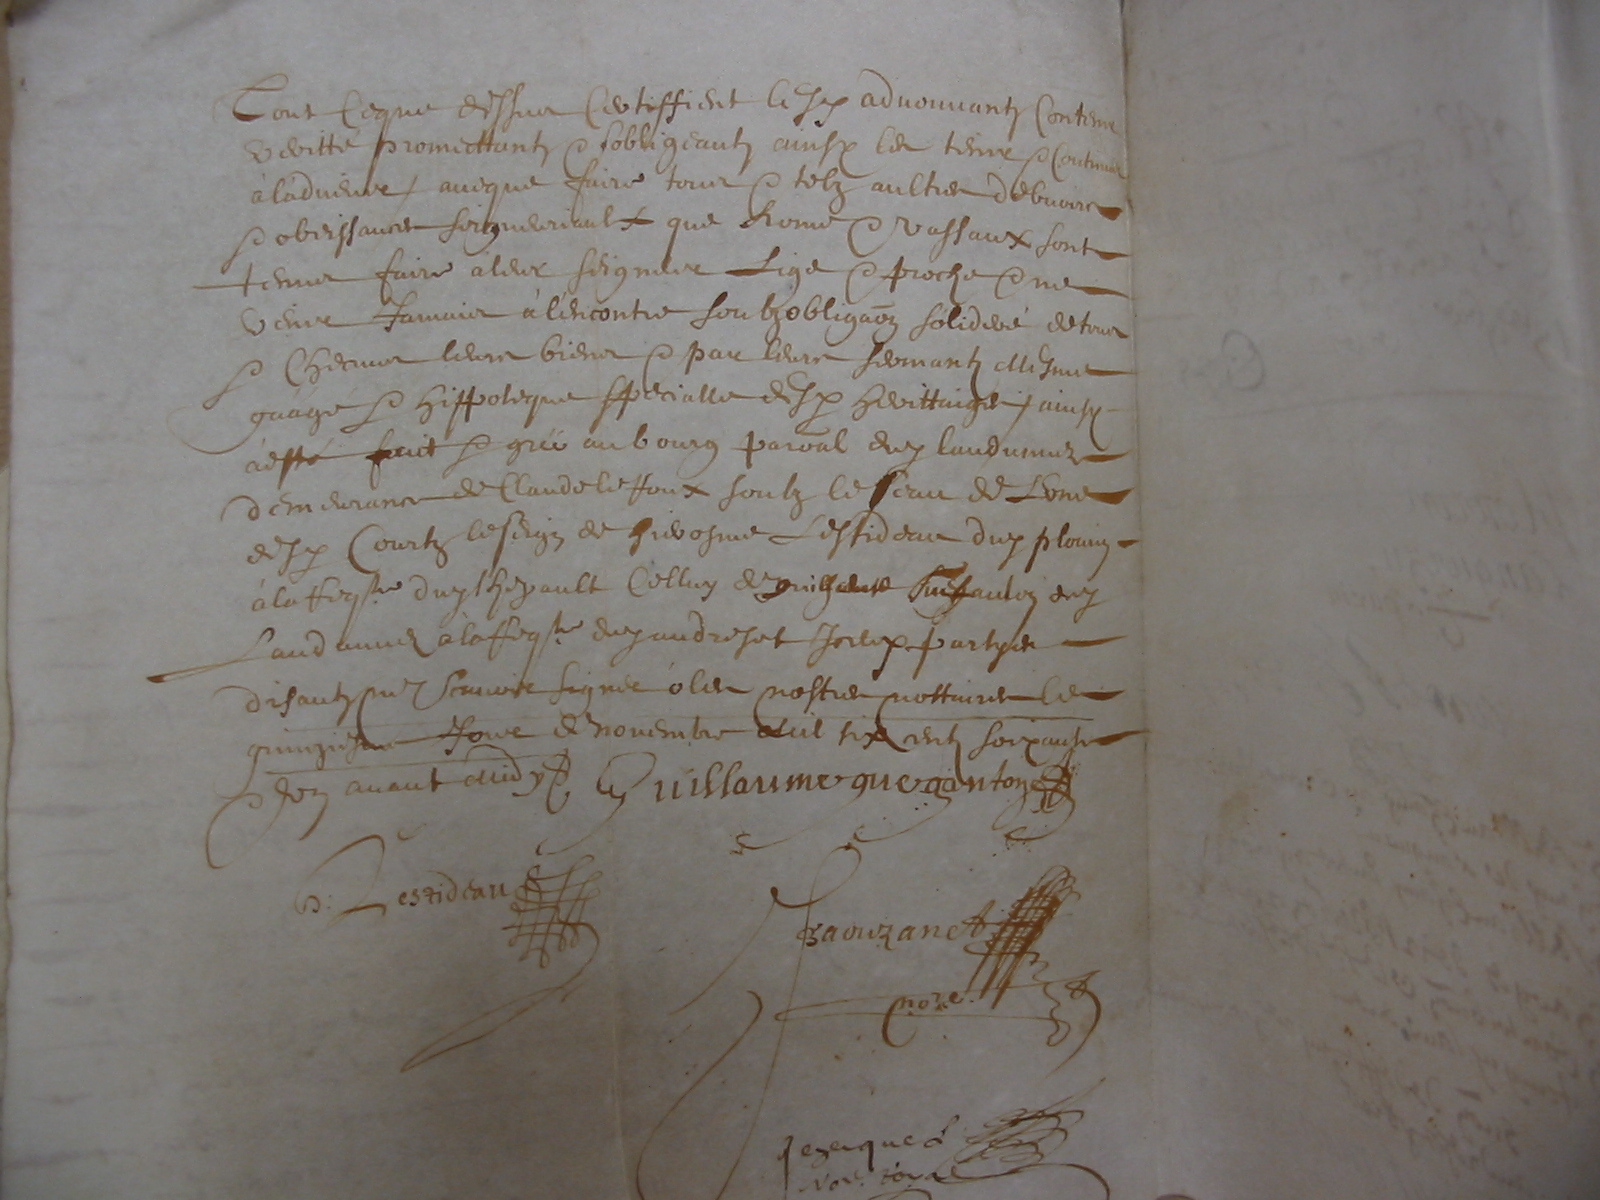 Tout ceque dessus certiffient lesd advouuantz contenir
veritté promettantz & sobligeantz ainsy les tenir & continuer
à ladvenir / aveque faire tous & telz aultres debvoirs
& obeissances seigneuriaulx que home & vassaux sont
tenus faire à leur seigneur lige & proche & ne
venir Jamais à lencontre soubz obligaōn solideré de tous
& Checuns leurs biens & par leurs sermantz Mesme
gaage & hippoteque specialle desd herittaiges / ainsy
à esté faict & gréé au bourg paroāl de landunnuez
demeurance de Claude le Roux soubz le sceau de Lune
desd Courtz le seign de hierosme Lestideau de plouin
à la Reqte du Thepault Celluy de
Landunnuez à la Reqte de andre Jezequel partyes
disantz ne scavoir signer ô les nostres nottaires le
quinziesme Jour de novembre Mil six centz soixante
& dix avant Midy Guillaume guegantou
h: Lestideau
Jaouzanet
nore
Jezequel
nore royal